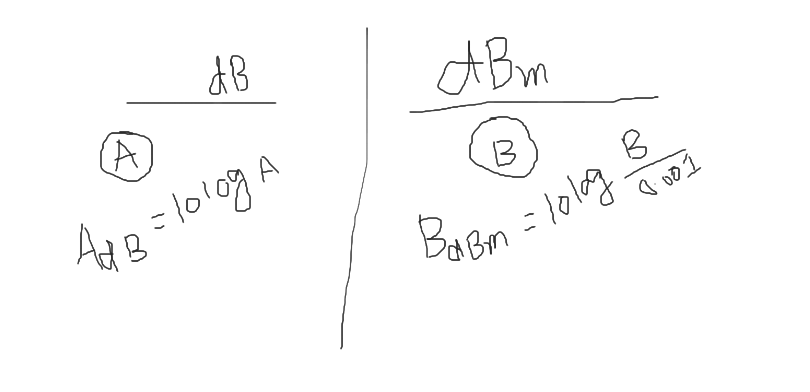 dB
A
AdB = 10 log A
dBm
B
BdBm = 10 log B/0.001